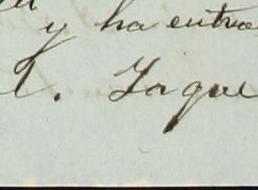 y ha entra
l. Jaque